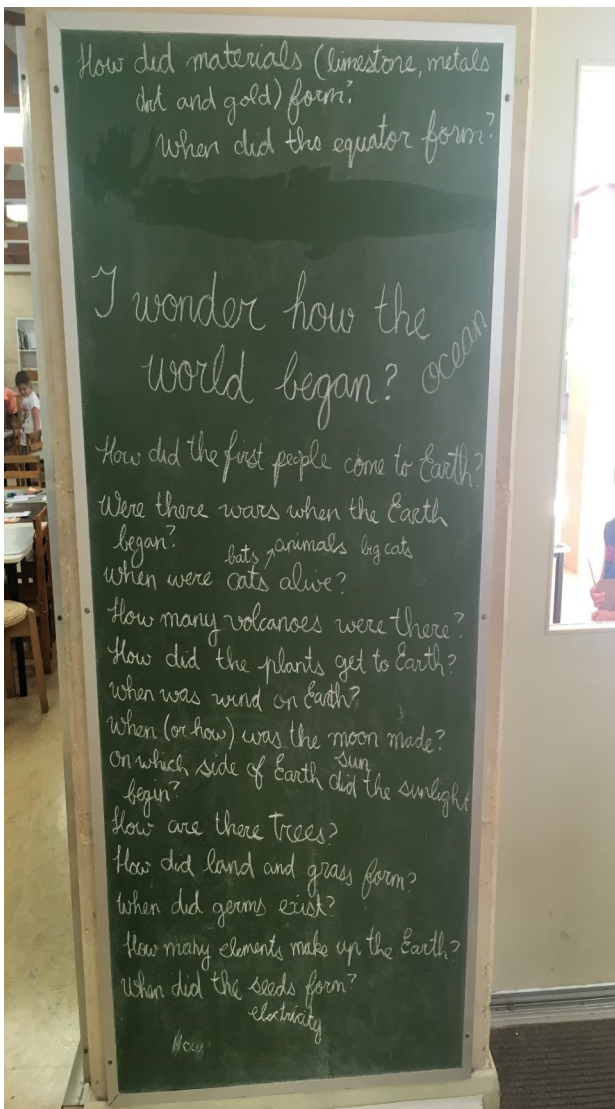 How did materials (limestone, metals
dirt and gold) form?
When did the equator form?
I wonder how the
world began? ocean
How did the first people come to Earth?
Were there wars when the Earth
began?
bats, animals big cats
When were cats alive?
How many volcanoes were there?
How did the plants get to Earth?
When was wind on Earth?
When (or how) was the moon made?
sun
On which side of Earth did the sunlight
begin?
How are there trees?
How did land and grass form?
When did germs exist?
How many elements make up the Earth?
When did the seeds form?
electricity
How